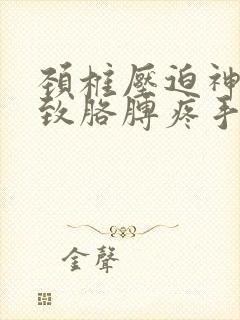 頚椎壓迫神
致胳膊疼手
金聲